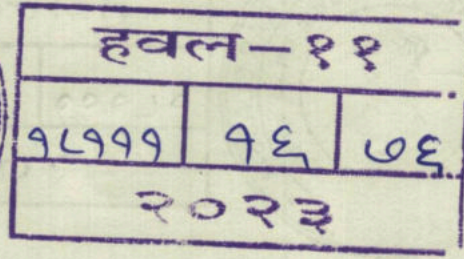 हवल-११
१८१११ १६ ७६
२०२३